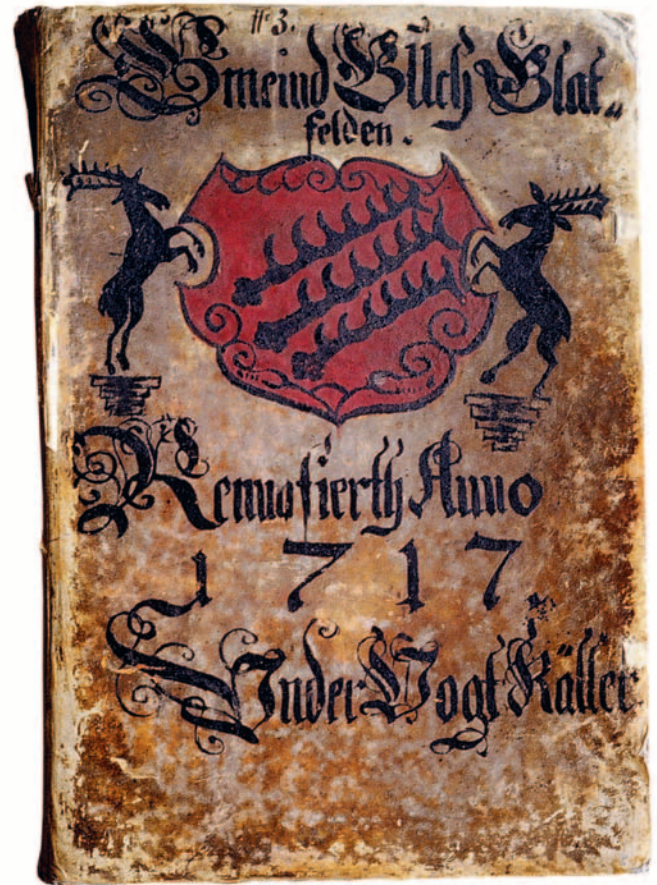 # 3.
Gmeind Büch Glat„
felden.
Renuofierth Anno
1717
Vnder Vogt Käller